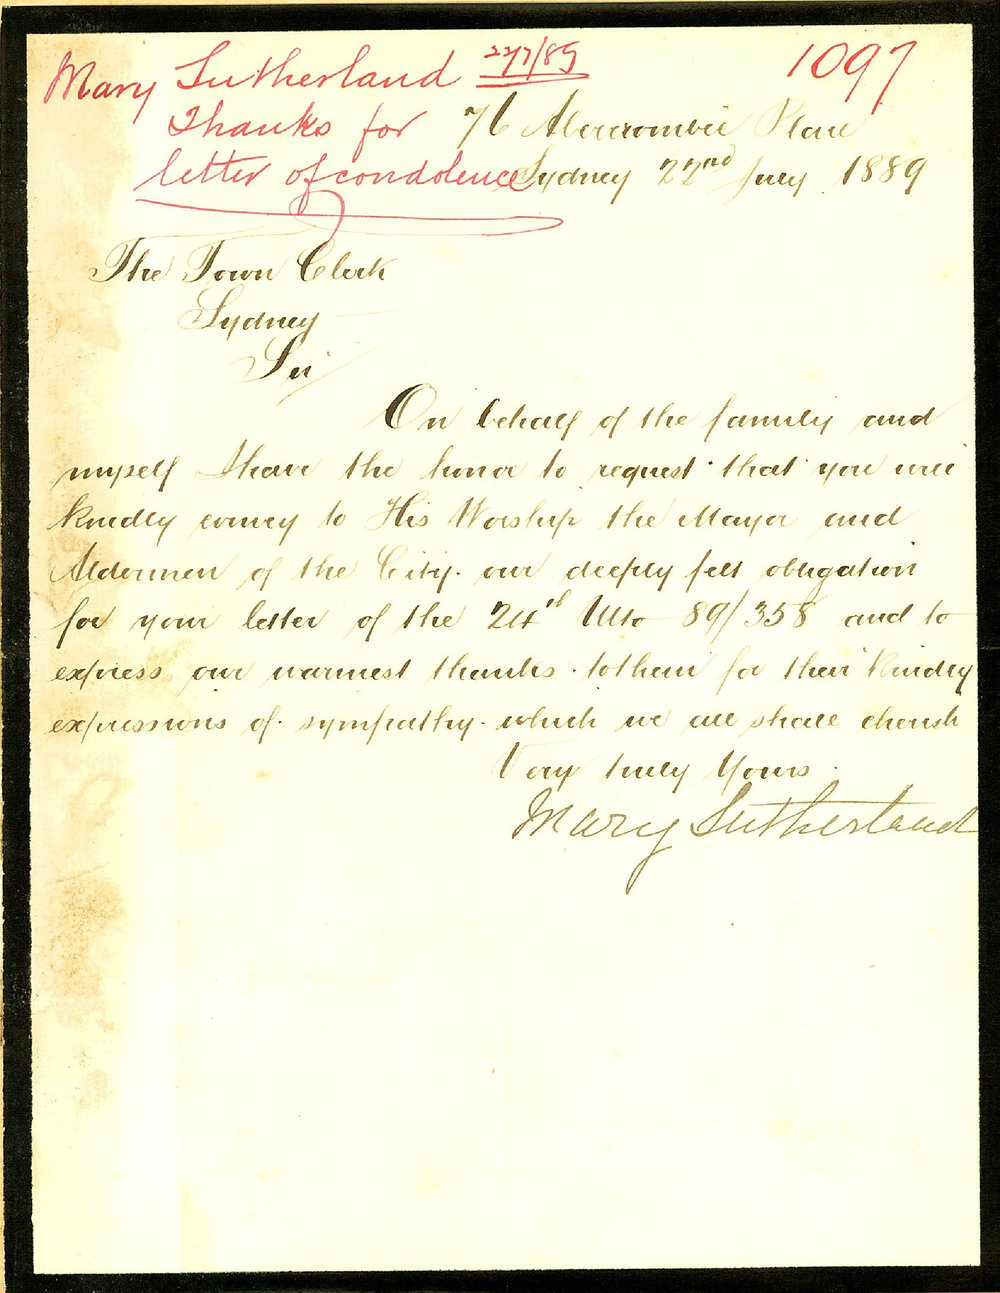 Mary Sutherland 22/7/89
1097
Thanks for
letter of condolence
76 Abercrombie Place
Sydney 22nd July 1889
The Town Clerk
Sydney
Sir
On behalf of the family and
myself I have the honor to request that you will
kindly convey to His Worship the Mayor and
Aldermen of the City. our deeply felt obligation
for your letter of the 24th Ulto 89/358 and to
express our warmest thanks. to them for their kindly
expressions of sympathy. which we all shall cherish
Very truly Yours.
Mary Sutherland